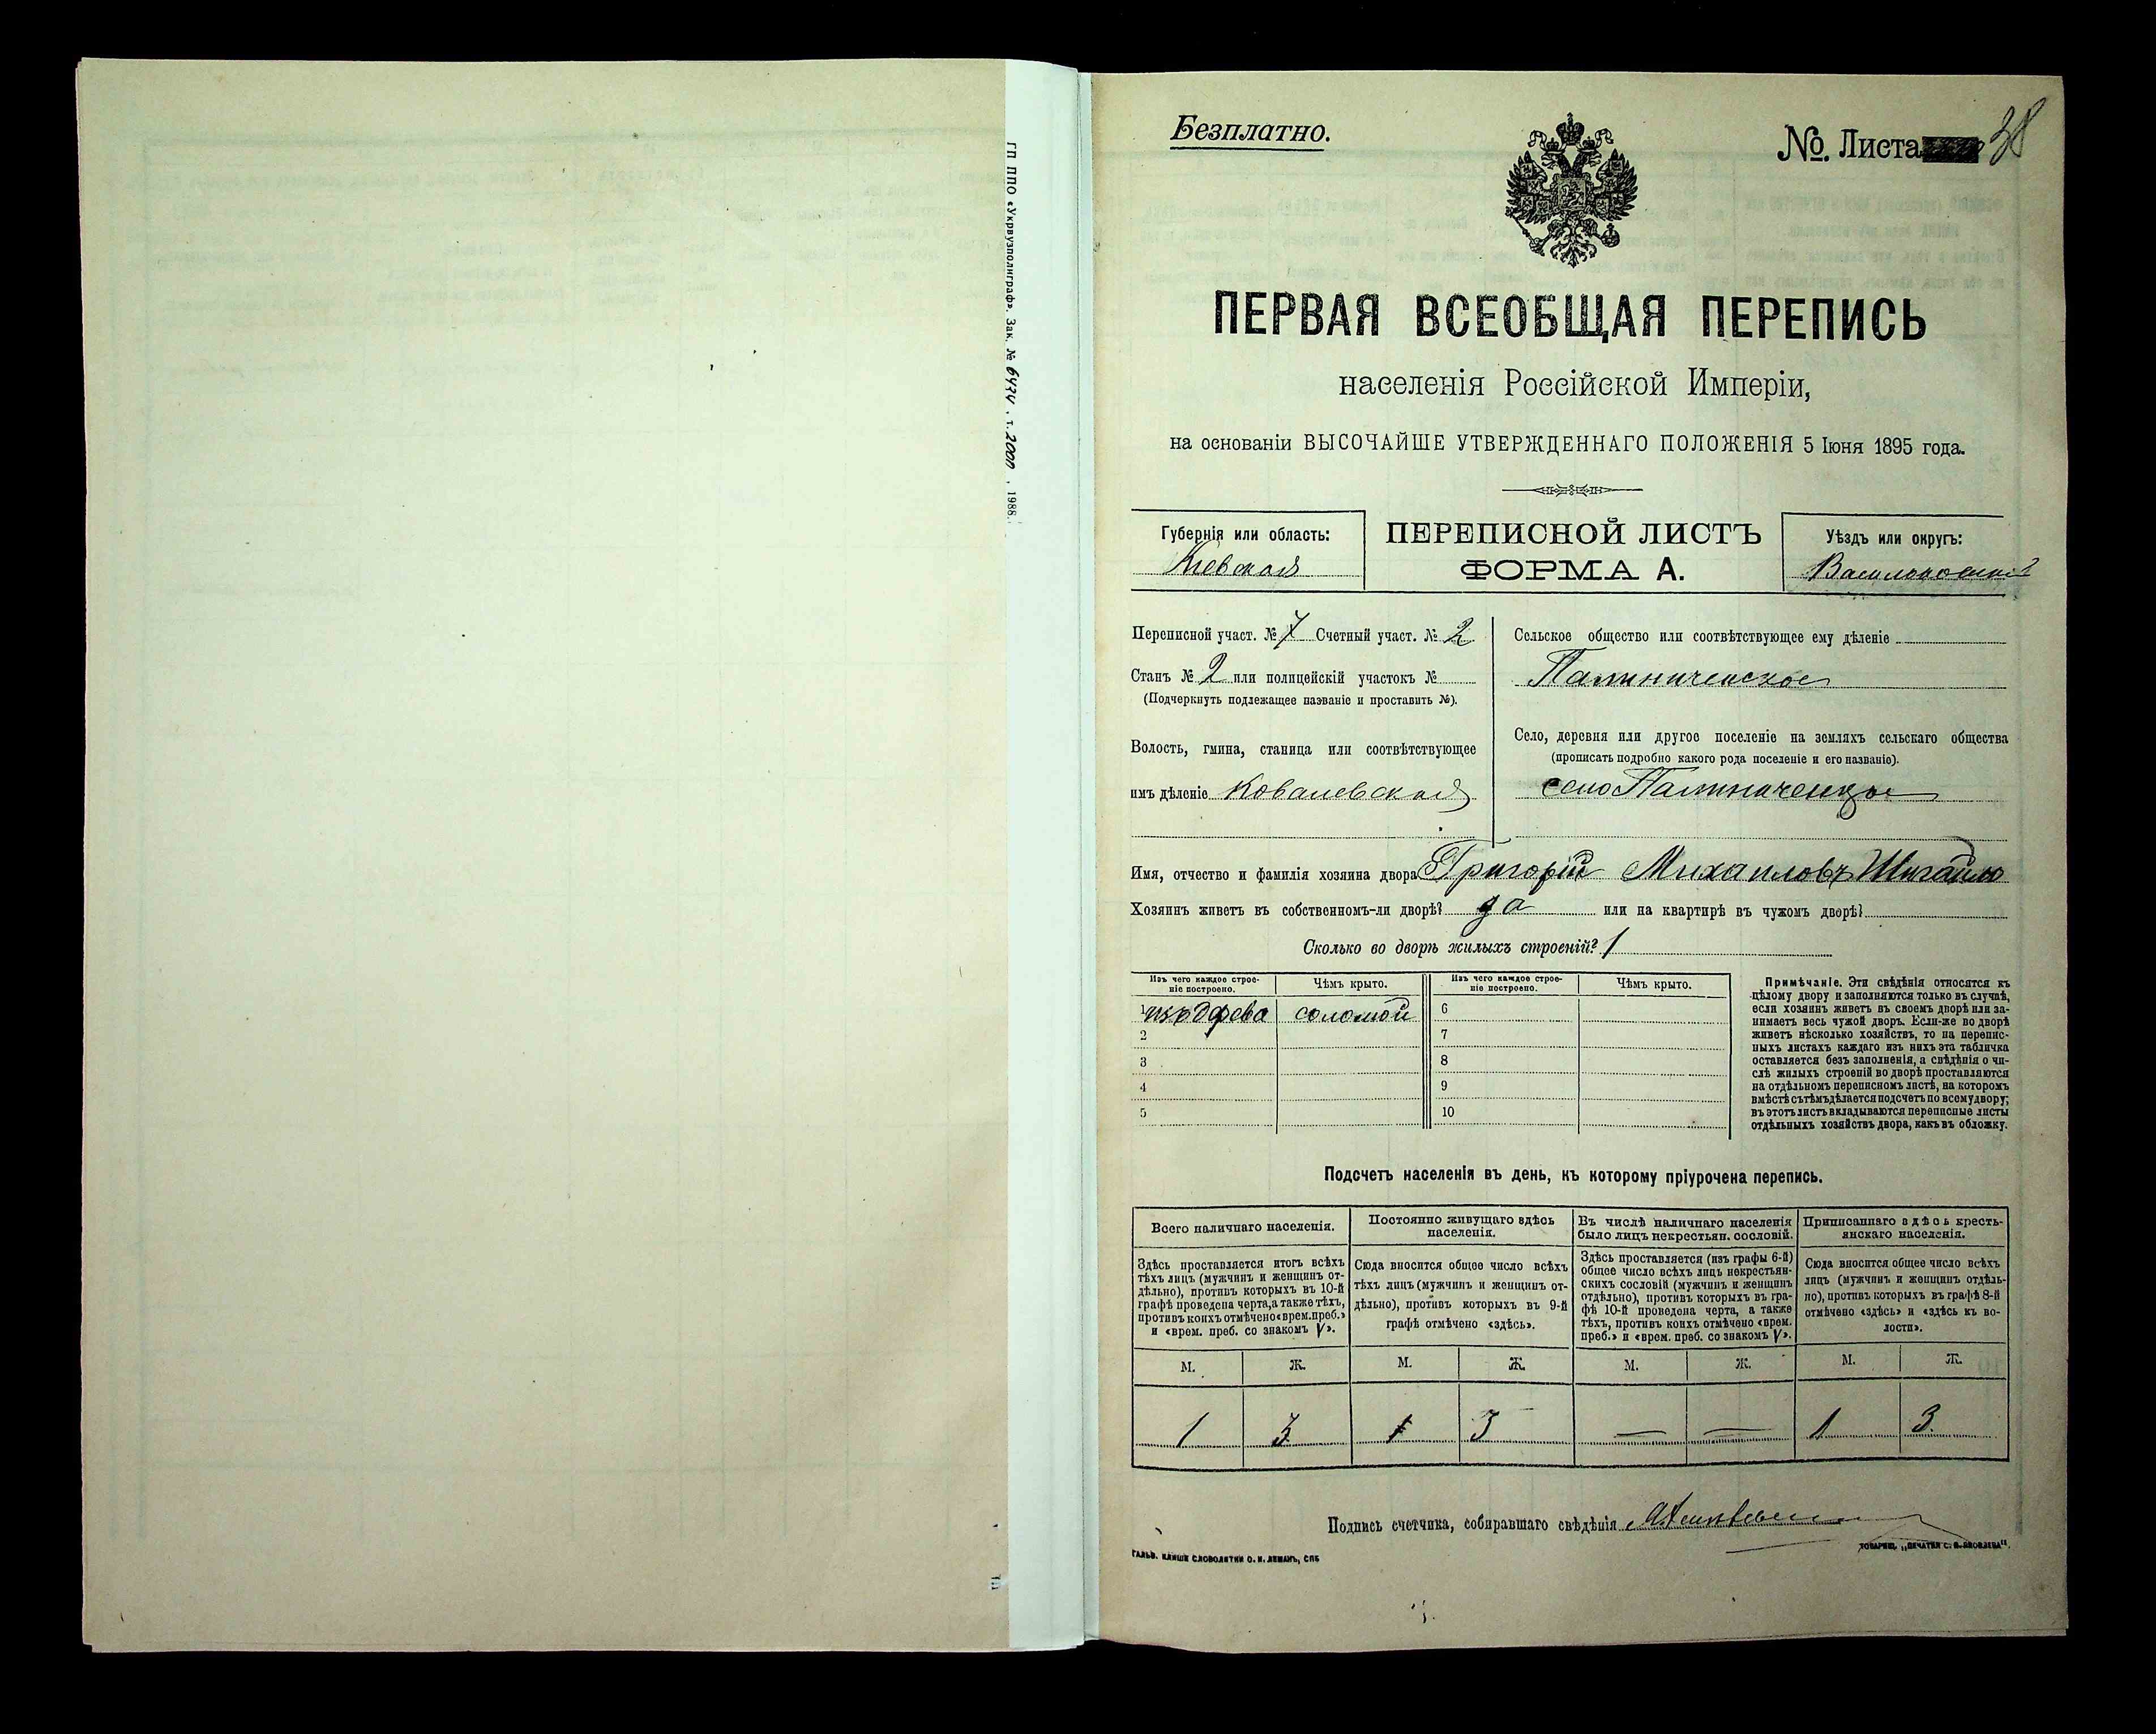 Безплатно.
№. Листа 38
ПЕРВАЯ ВСЕОБЩАЯ ПЕРЕПИСЬ
населенія Россійской Имперіи,
на основаніи ВЫСОЧАЙШЕ УТВЕРЖДЕННАГО ПОЛОЖЕНІЯ 5 Іюня 1895 года.
Губернія или область:
Кіевская
ПЕРЕПИСНОЙ ЛИСТЪ
ФОРМА А.
Уѣздъ или округъ:
Васильковскій
Переписной участ. № 7 Счетный участ. № 2
Станъ № 2 или полицейскій участокъ №
(Подчеркнуть подлежащее названіе и проставить №).
Волость, гмина, станица или соотвѣтствующее
имъ дѣленіе Ковалевская
Сельское общество или соотвѣтствующее ему дѣленіе
Палиниченское
Село, деревня или другое поселеніе на земляхъ сельскаго общества
(прописать подробно какого рода поселеніе и его названіе).
село
Имя, отчество и фамилія хозяина двора Григорій Михаиловъ Шигайло
Хозяинъ живетъ въ собственномъ-ли дворѣ? да или на квартирѣ въ чужомъ дворѣ?
Сколько во дворѣ жилыхъ строеній? 1
Изъ чего каждое строе-
ніе построено.
Чѣмъ крыто.
Изъ чего каждое строе-
ніе построено.
Чѣмъ крыто.
1 изъ дерева соломой 6
2 7
3 8
4 9
5 10
Примѣчаніе. Эти свѣдѣнія относятся къ
цѣлому двору и заполняются только въ случаѣ,
если хозяинъ живетъ въ своемъ дворѣ или за-
нимаетъ весь чужой дворъ. Если-же во дворѣ
живетъ нѣсколько хозяйствъ, то на перепис-
ныхъ листахъ каждаго изъ нихъ эта табличка
оставляется безъ заполненія, а свѣдѣнія о чи-
слѣ жилыхъ строеній во дворѣ проставляются
на отдѣльномъ переписномъ листѣ, на которомъ
вмѣстѣ съ тѣмъ дѣлается подсчетъ по всему двору;
въ этотъ листъ вкладываются переписные листы
отдѣльныхъ хозяйствъ двора, какъ въ обложку.
Подсчетъ населенія въ день, къ которому пріурочена перепись.
Всего наличнаго населенія.
Здѣсь проставляется итогъ всѣхъ
тѣхъ лицъ (мужчинъ и женщинъ от-
дѣльно), противъ которыхъ въ 10-й
графѣ проведена черта, а также тѣхъ,
противъ коихъ отмѣчено «врем. преб.»
и «врем. преб. со знакомъ V».
Постоянно живущаго здѣсь
населенія.
Сюда вносится общее число всѣхъ
тѣхъ лицъ (мужчинъ и женщинъ от-
дѣльно), противъ которыхъ въ 9-й
графѣ отмѣчено «здѣсь».
Въ числѣ наличнаго населенія
было лицъ некрестьян. сословій.
Здѣсь проставляется (изъ графы 6-й)
общее число всѣхъ лицъ некрестьян-
скихъ сословій (мужчинъ и женщинъ
отдѣльно), противъ которыхъ въ гра-
фѣ 10-й проведена черта, а также
тѣхъ, противъ коихъ отмѣчено «врем.
преб.» и «врем. преб. со знакомъ V».
Приписаннаго здѣсь кресть-
янскаго населенія.
Сюда вносится общее число всѣхъ
лицъ (мужчинъ и женщинъ отдѣль-
но), противъ которыхъ въ графѣ 8-й
отмѣчено «здѣсь» и «здѣсь въ во-
лости».
М. Ж. М. Ж. М. Ж. М. Ж.
1 3 1 3 — — 1 3
Подпись счетчика, собиравшаго свѣдѣнія
ГАЛЬВ. КЛИШЕ СЛОВОЛИТНИ О. И. ЛЕМАНЪ, СПБ
ТОВАРИЩ. „ПЕЧАТНЯ С. П. ЯКОВЛЕВА".
ГП ППО «Укрвузполиграф». Зак. № 6474, т. 2000, 1988.